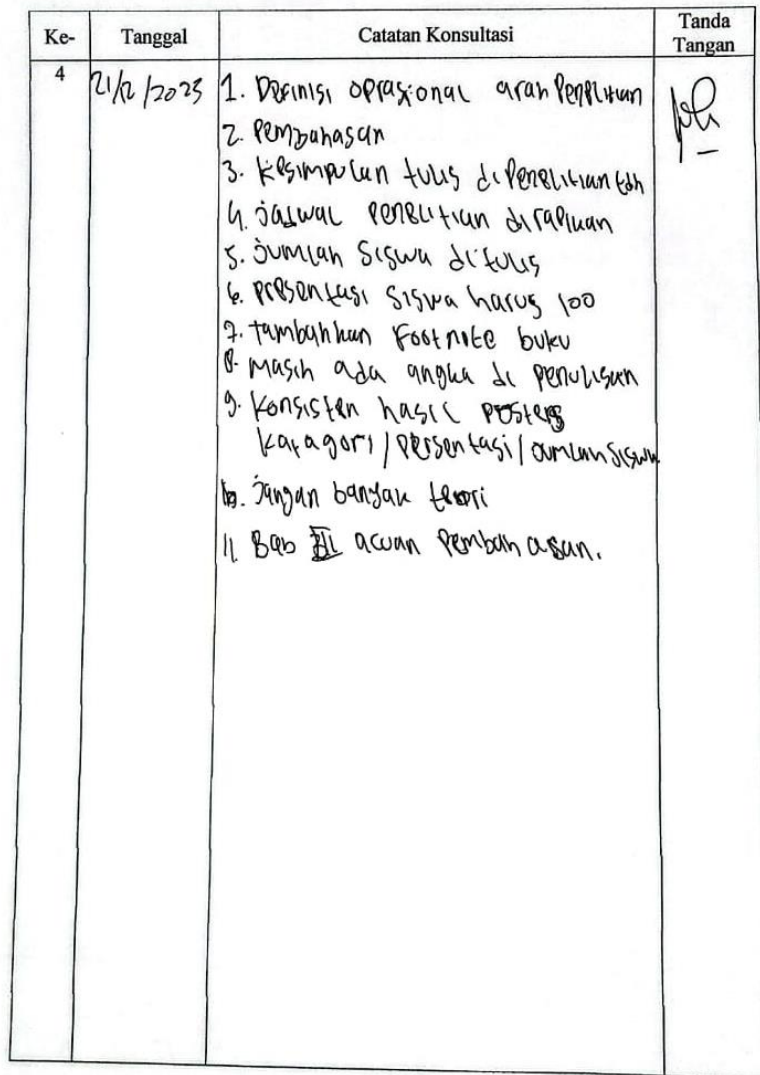 Ke- Tanggal Catatan Konsultasi Tanda Tangan
4 21/12/2023 1. Definisi oprasional arah Penelitian
2. Pembahasan
3. Kesimpulan tulis di Penelitian
4. Jadwal Penelitian dirapikan
5. Jumlah Siswa ditulis
6. Presentasi Siswa harus 100
7. tambahkan Footnote buku
8. Masih ada angka di penulisan
9. Konsisten hasil
Katagori/persentasi/Jumlah Siswa
10. Jangan banyak teori
11. Bab acuan Pembahasan.